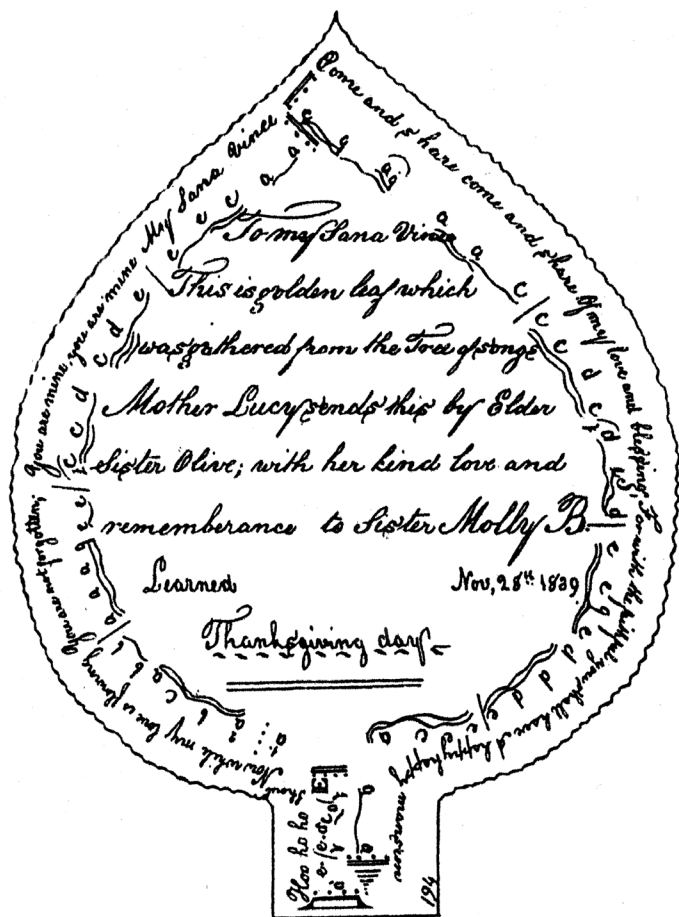 To my Sana Vince
This is golden leaf which
was gathered from the Tree of songs
Mother Lucy sends this by Elder
Sister Olive; with her kind love and
rememberance to Sister Molly B.
Learned Nov, 28th 1839
Thanksgiving day
Come and share come and share Of my love and blessing; For with the faithful you shall have A happy happy
mansion
Hoo ho ho
Shout
Now while my love is flowing You are not forgotten; You are mine you are mine you are mine My Sana Vince
194